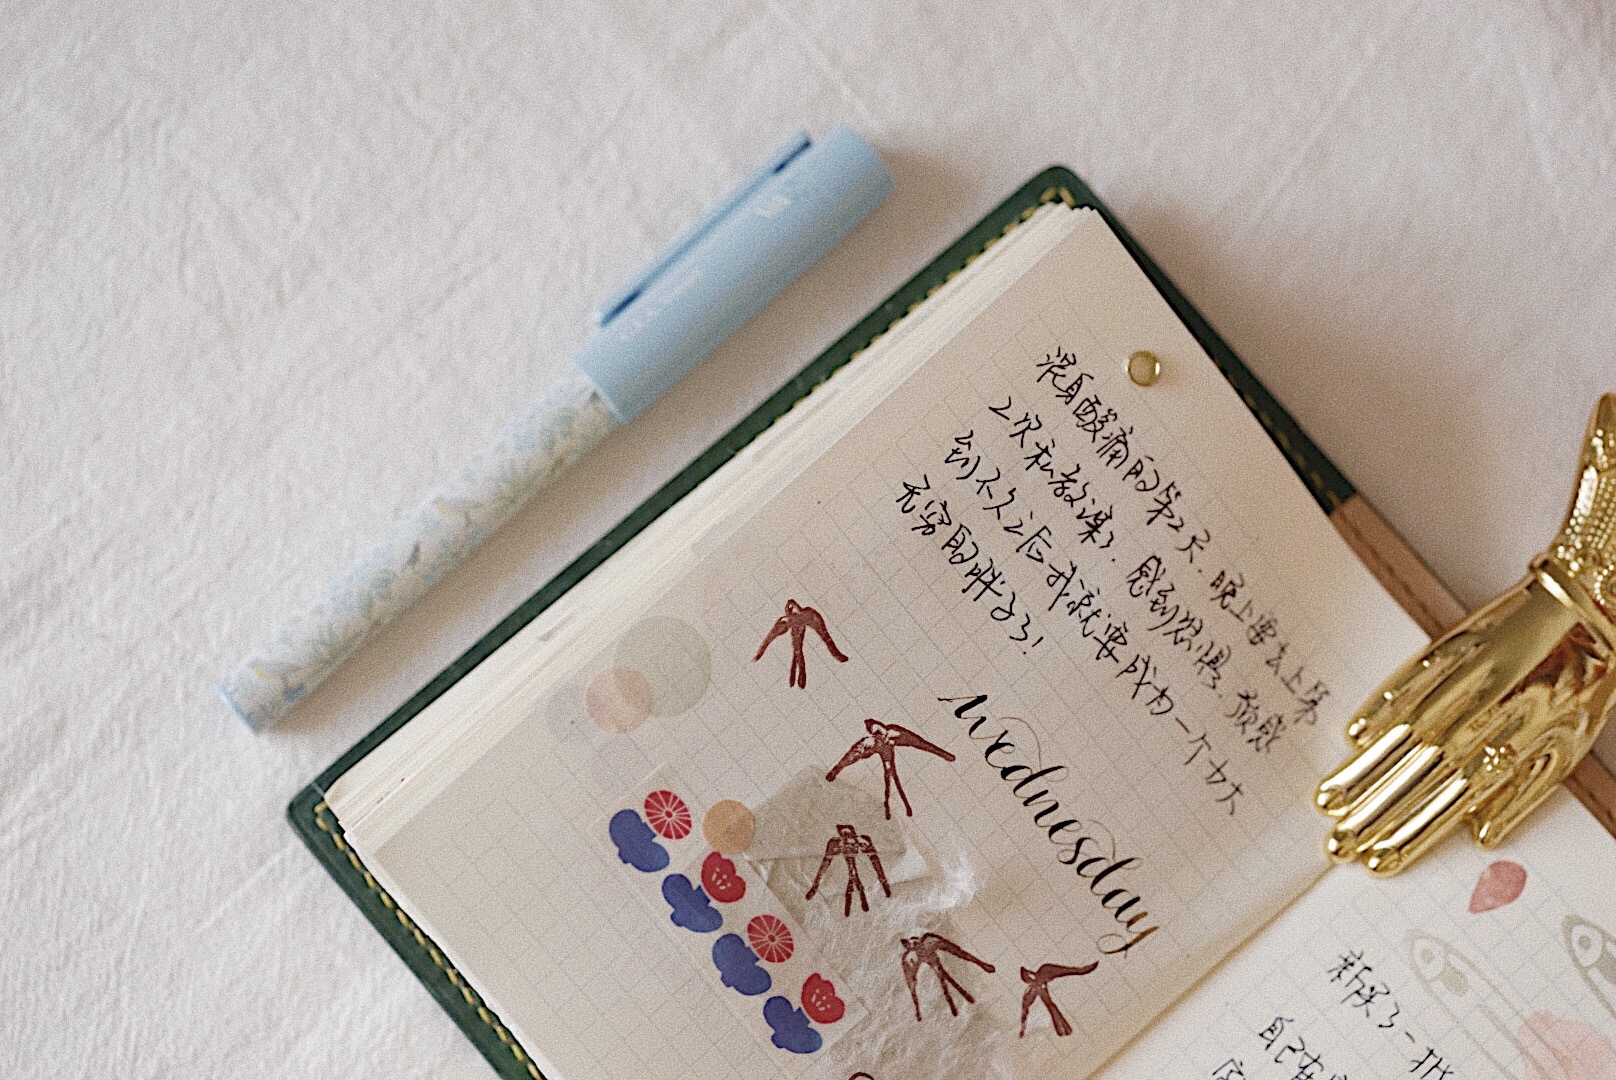 浑身酸痛的第2天. 晚上要去上第
2次私教课了. 感到恐惧. 预感
到不久之后我就要成为一个力大
无穷的胖子了!
wednesday
新买了一批
自己在